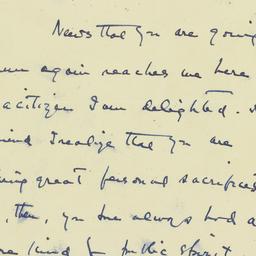 News that you are going
again reaches me here
a citizen I am delighted.
I realize that you are
great personal sacrifices
, then, you have always had a
kind of public spirit